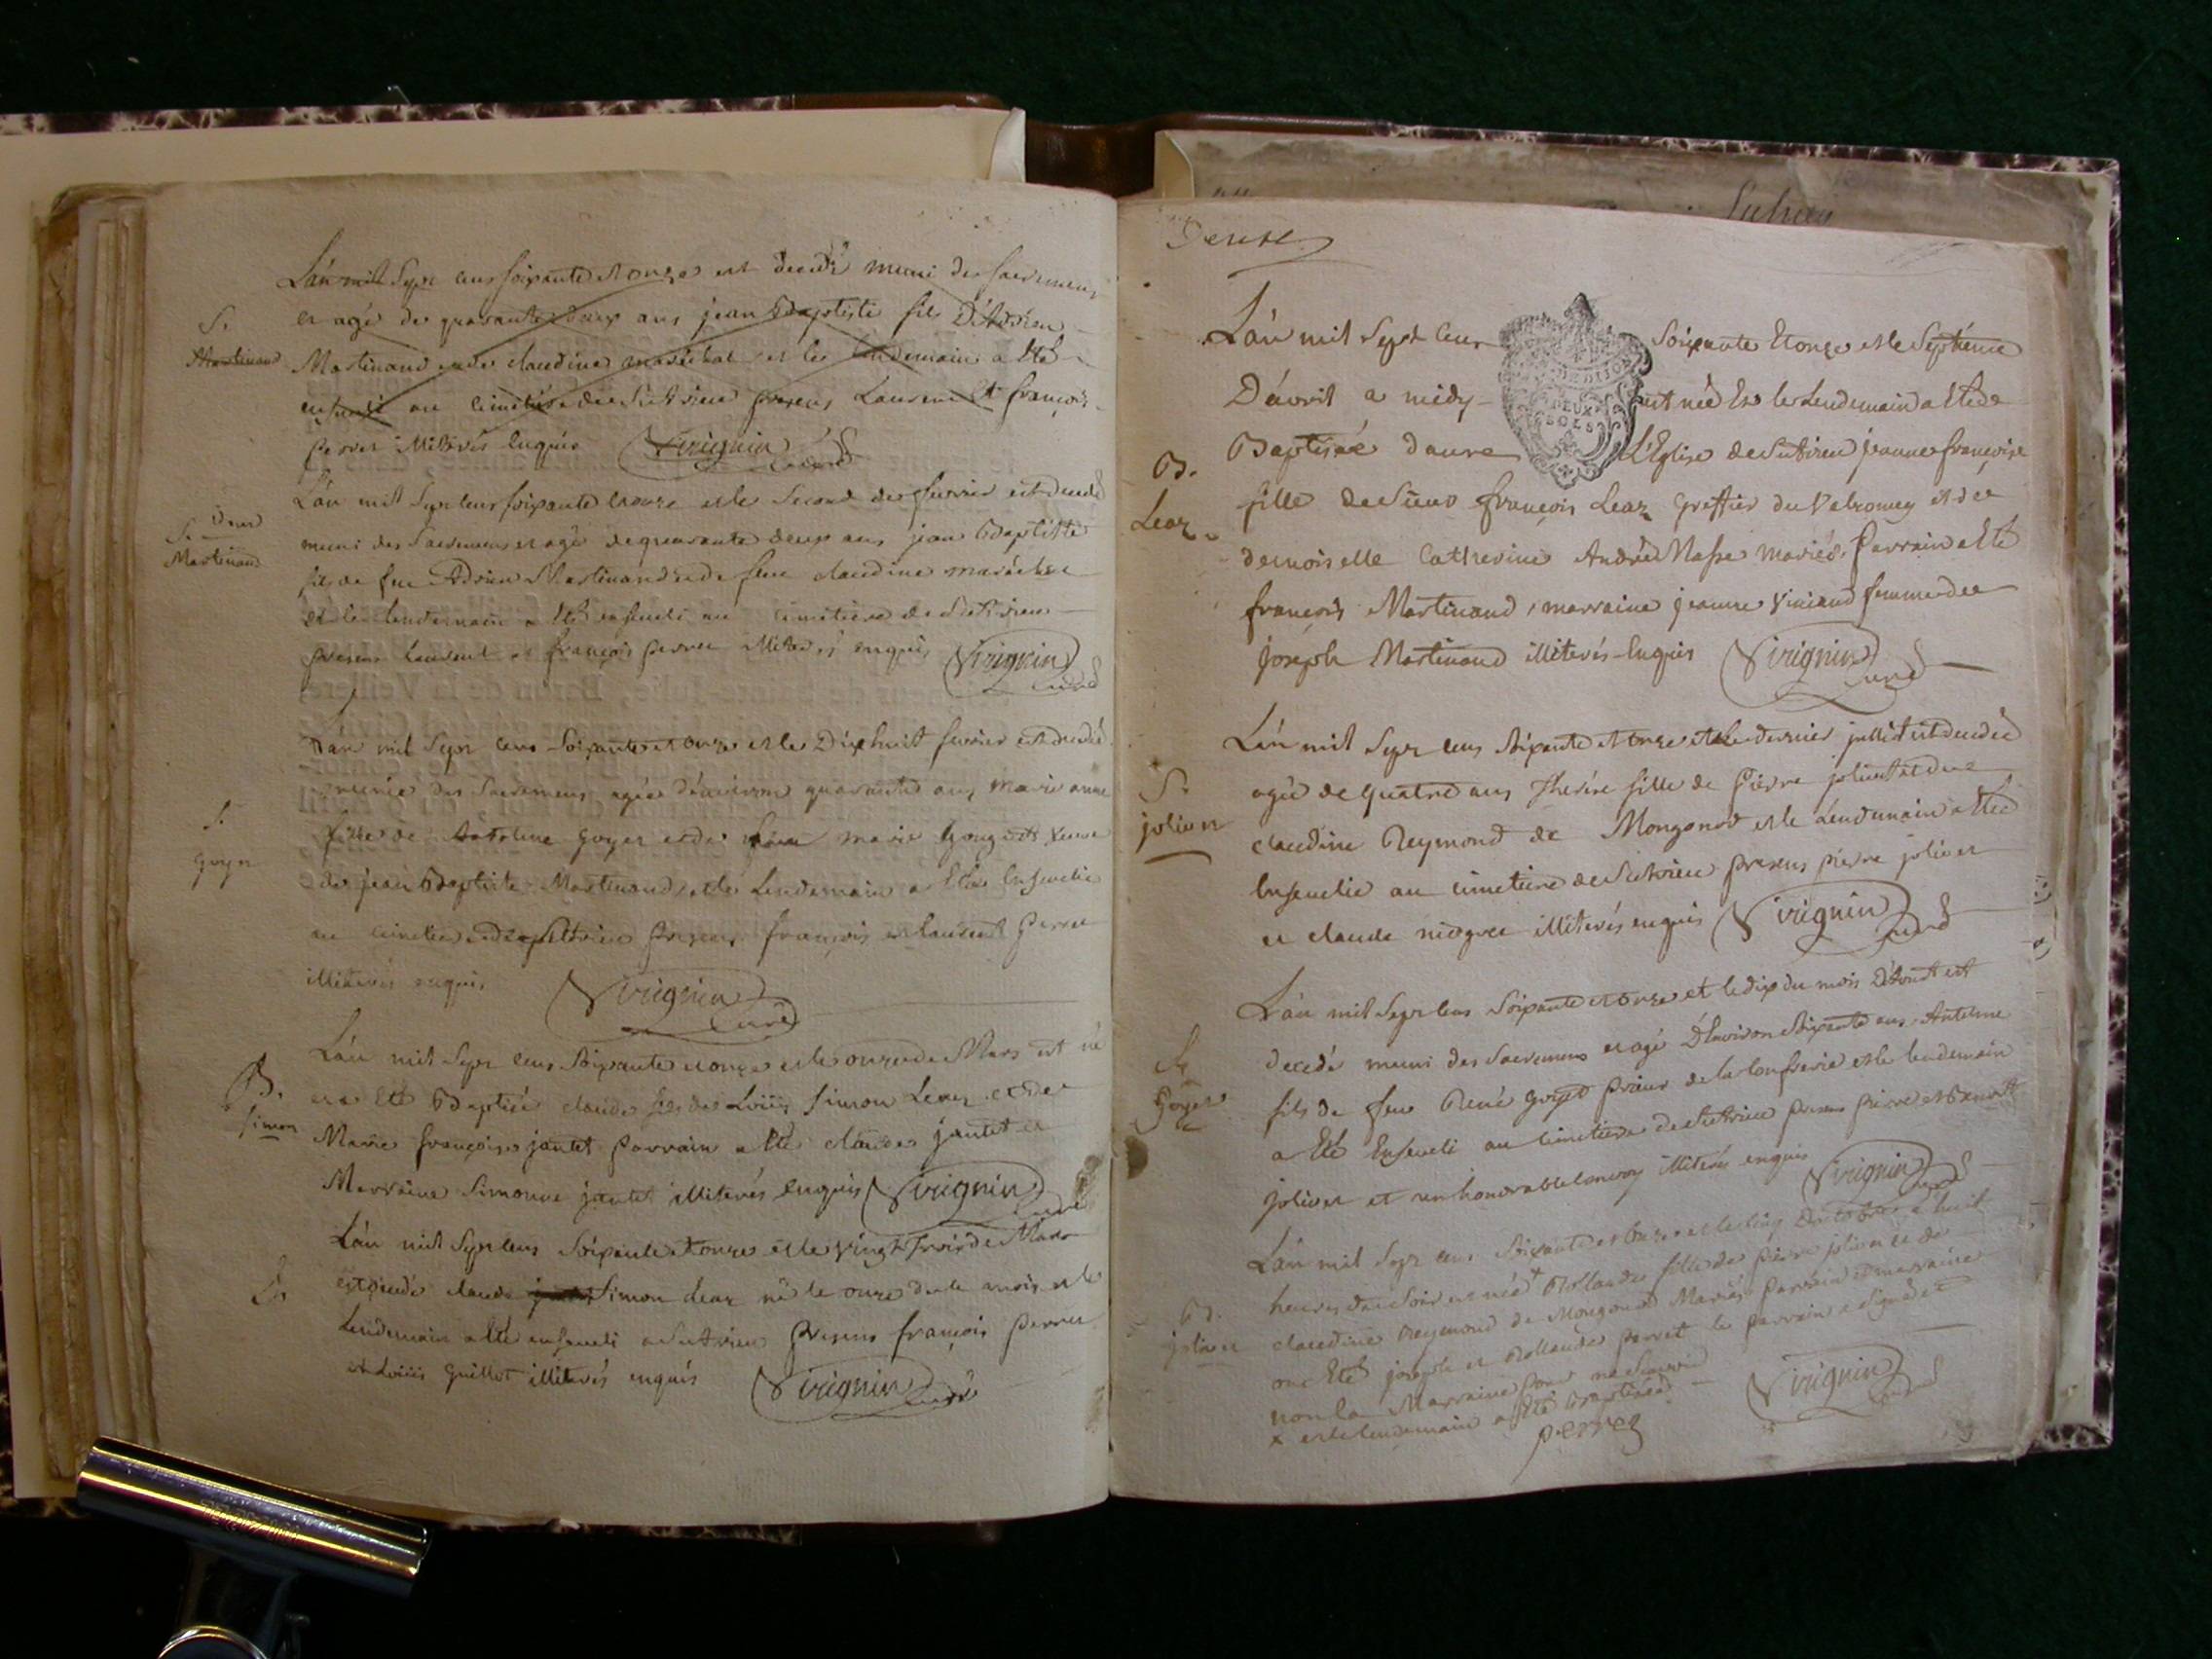 S.
Martinand
L'an mil Sept cens soixante et onze est decedé muni des sacremens
et agé de quarante deux ans jean Baptiste fils D'Adrien
Martinand et de claudine maréchal et le lendemain a Eté
enseveli au cimetière de Sutrieu presens Laurent Et françois
perret illiterés Enquis Virignin curé
S.
Martinand
L'an mil Sept cens soixante et onze et le Second de fevrier est decedé
muni des Sacremens et agé de quarante deux ans jean Baptiste
fils de feu Adrien Martinand et de feue claudine maréchal
et le lendemain a Eté enseveli au cimetiere de Sutrieu
presens Laurent et françois perret illiterés enquis Virignin
curé
S.
goyet
L'an mil Sept cens Soixante et onze et le Dix huit fevrier est decedée
munie des Sacremens agée d'environ quarante ans marie anne
fille de Antelme goyet et de marie gouget veuve
de jean Baptiste Martinand, et le Lendemain a Eté Ensevelie
au cimetiere de Sutrieu presens françois et laurent perret
illiterés enquis Virignin
curé
B.
simon
L'an mil Sept cens Soixante et onze et le onze de Mars est né
et a Eté Baptisé claude fils de Loüis simon Lear et de
Marie françoise jantet parrain a Eté claude jantet et
Marraine Simonne jantet illiterés Enquis Virignin
curé
S.
L'an mil Sept cens Soixante et onze et le vingt trois de Mars
est decedé claude Simon Lear né le onze de le mois et le
Lendemain a Eté enseveli a Sutrieu presens françois perret
et Loüis guillot illiterés enquis Virignin curé
L'an mil Sept Cens Soixante Et onze et le Septième
D'avril a midy est née Et le Lendemain a Eté
B.
Lear
Baptisée dans L'Eglise de Sutrieu jeanne françoise
fille de Sieur françois Lear greffier du Valromey et de
demoiselle Catherine André Masse mariés. Parrain a Eté
françois Martinand, marraine jeanne Viviand femme de
joseph Martinand illiterés Enquis Virignin
curé
S.
jolivet
L'an mil Sept cens soixante et onze et le dernier juillet est decedée
agée de quatre ans Therèse fille de Pierre jolivet et de
claudine Reymond de Mongonod et le Lendemain a Eté
Ensevelie au cimetiere de Sutrieu presens pierre jolivet
et claude illiterés enquis Virignin
curé
S.
Goyet
L'an mil Sept Cens Soixante et onze et le dix du mois D'Aoust est
decedé muni des Sacremens et agé D'Environ soixante ans Antelme
fils de feu René goyet prieur de la Confrerie et le lendemain
a Eté Enseveli au Cimetiere de Sutrieu presens pierre et Benoit
jolivet et un honorable Convoy illiterés enquis Virignin
curé
B.
jolivet
L'an mil Sept cens Soixante et onze et le cinq D'octobre a huit
heures du Soir est née + Rollande fille de pierre jolivet et de
claudine Reymond de Mongonod Mariés Parrain et marraine
ont Eté joseph et Rollande perret le parrain a signé et
non la Marraine pour ne Scavoir
x et le lendemain a Eté baptisée. Virignin
curé
perret